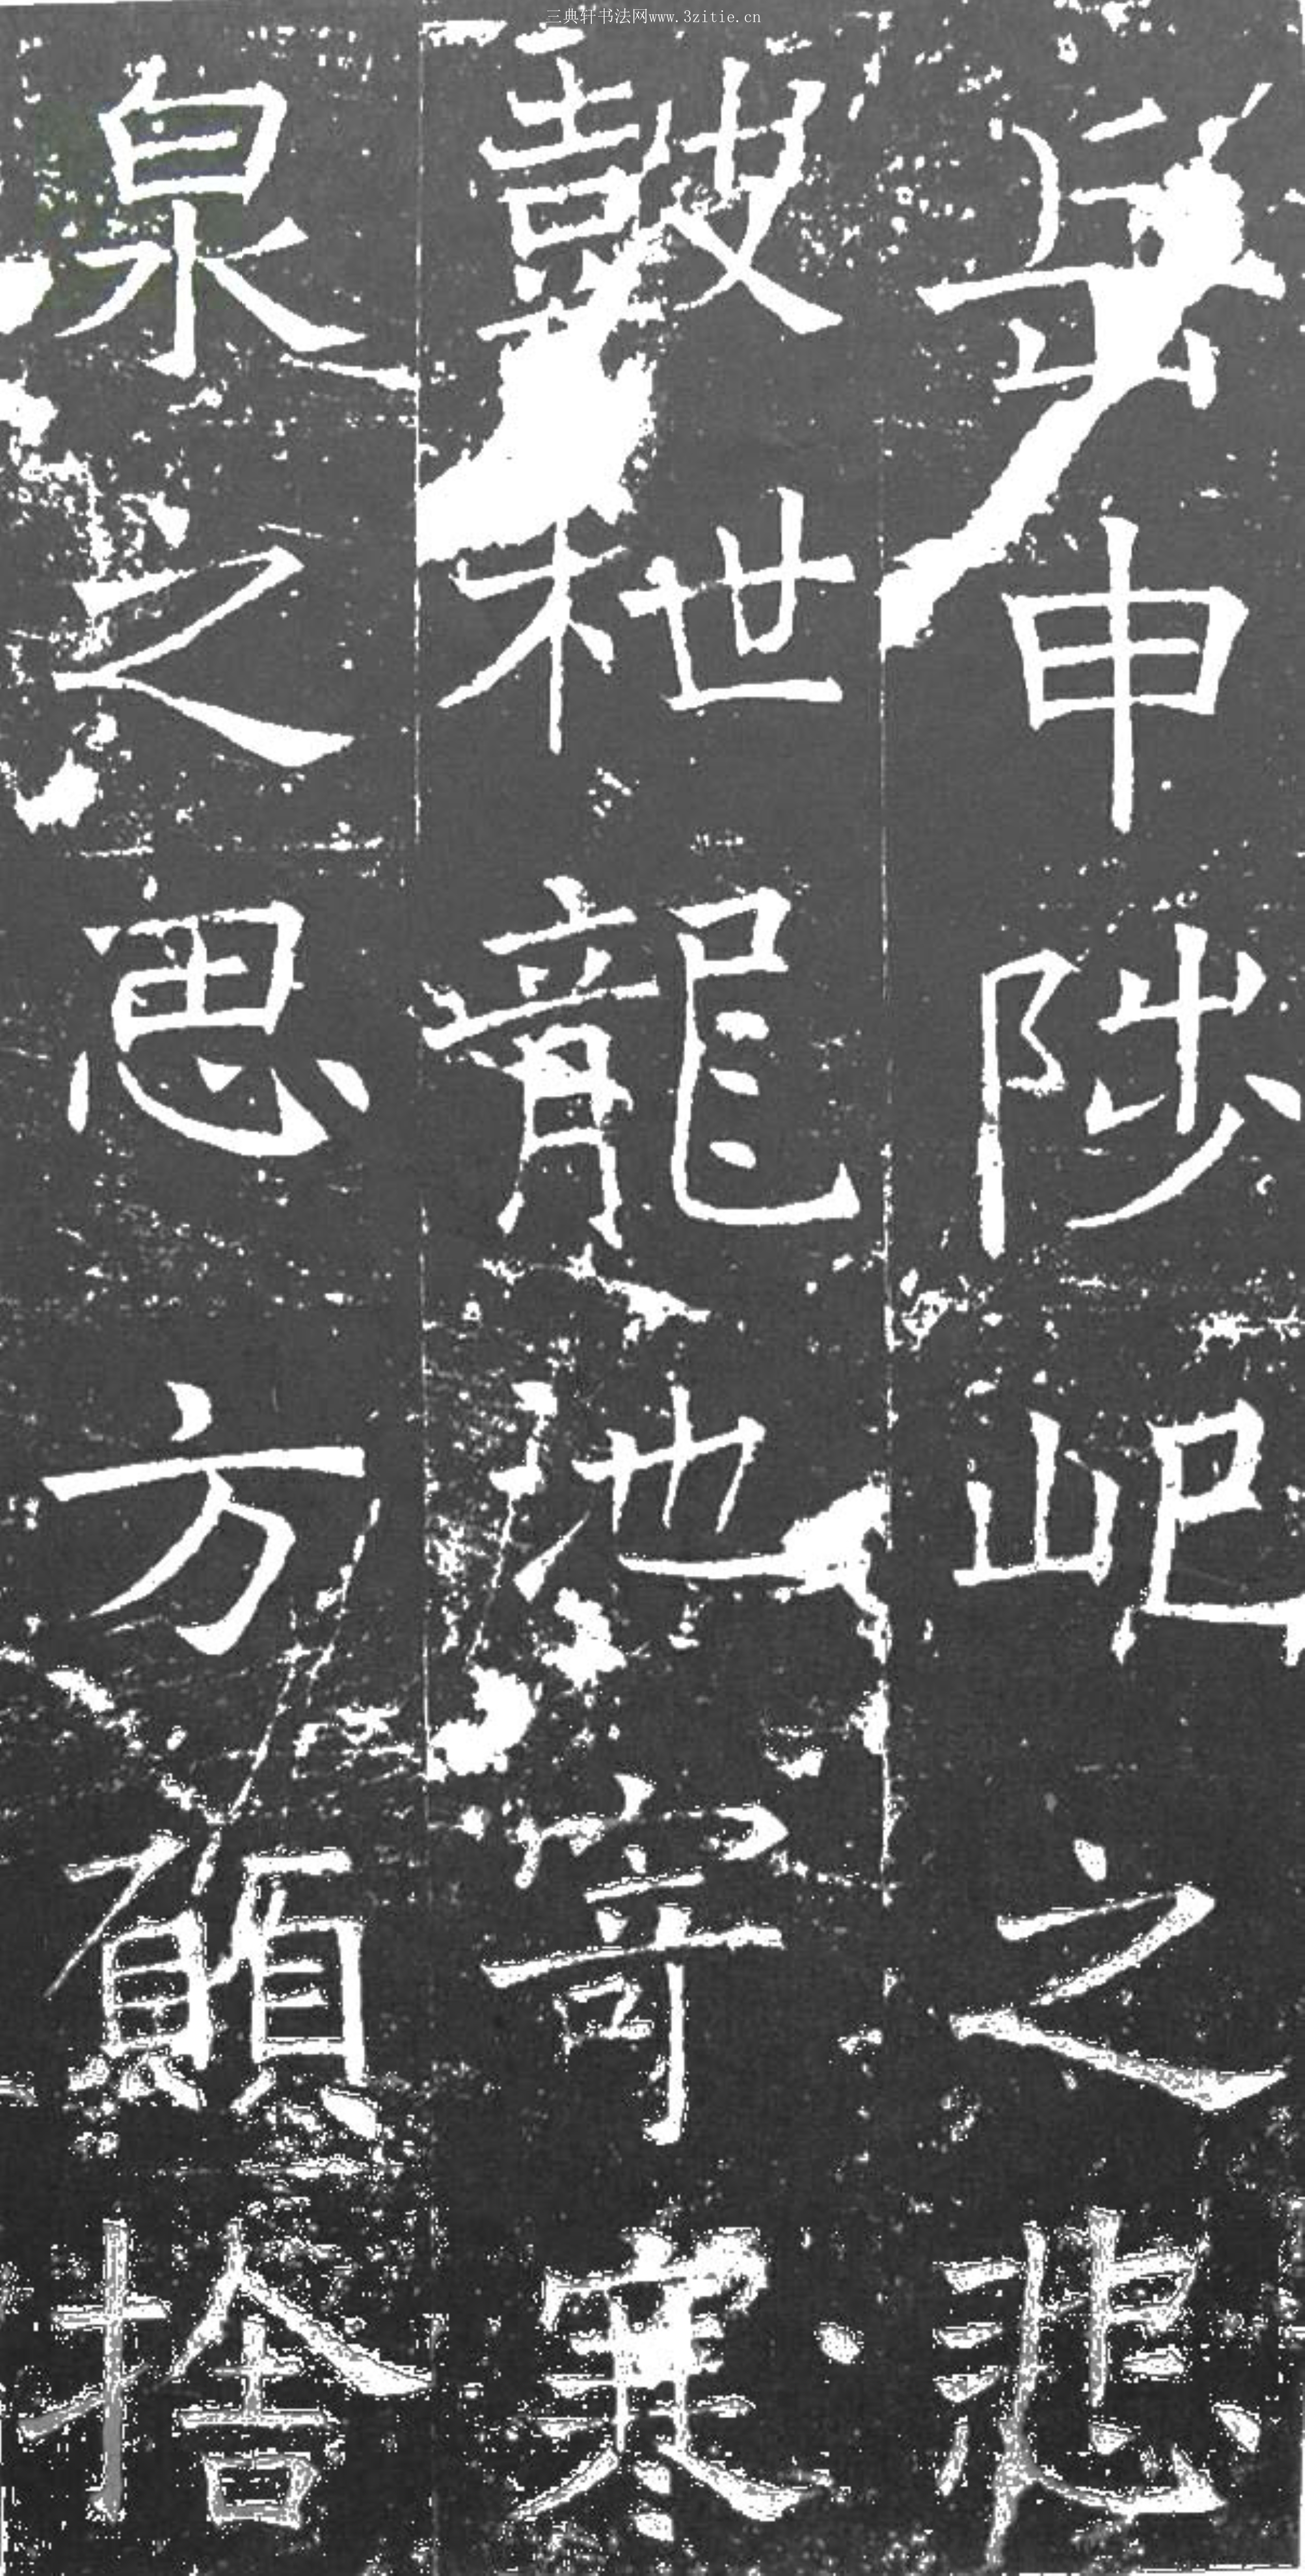 三典轩书法网www.3zitie.cn
岳申陟屺之悲
鼓枻龍池寄寒
泉之思方願捨